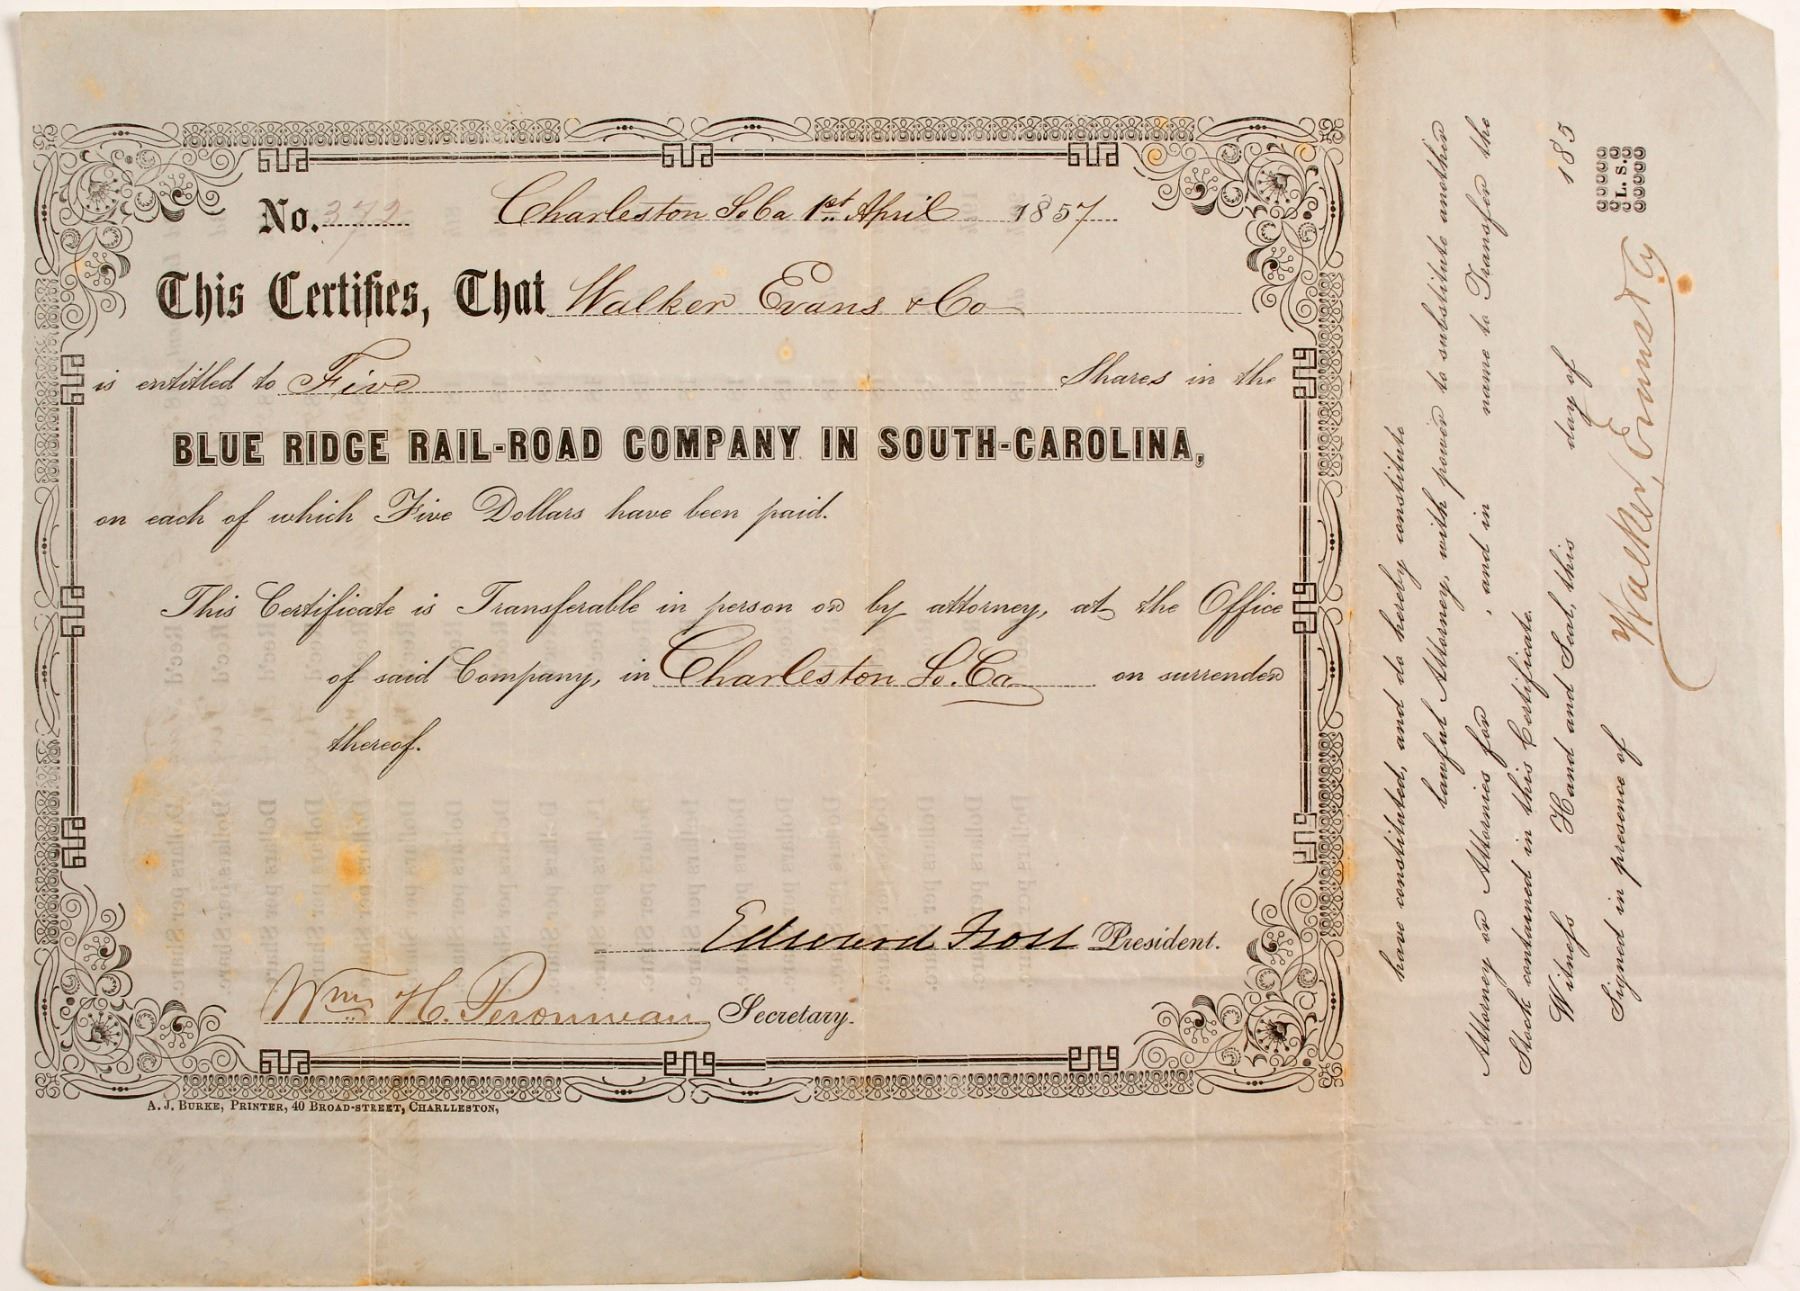 No. 372 Charleston So Ca 1st April 1857
This Certifies, That Walker Evans & Co
is entitled to Five Shares in the
BLUE RIDGE RAIL-ROAD COMPANY IN SOUTH-CAROLINA,
on each of which Five Dollars have been paid.
This Certificate is Transferable in person or by attorney, at the Office
of said Company, in Charleston So. Ca on surrender
thereof.
Edward Frost President.
Wm H. Peronneau Secretary.
A. J. BURKE, PRINTER, 40 BROAD-STREET, CHARLLESTON,
have constituted, and do hereby constitute
lawful Attorney, with power to substitute another
Attorney or Attornies for , and in name to Transfer the
Stock contained in this Certificate.
Witness Hand and Seal, this day of 185
Signed in presence of
Walker, Evans & Cy
L. S.